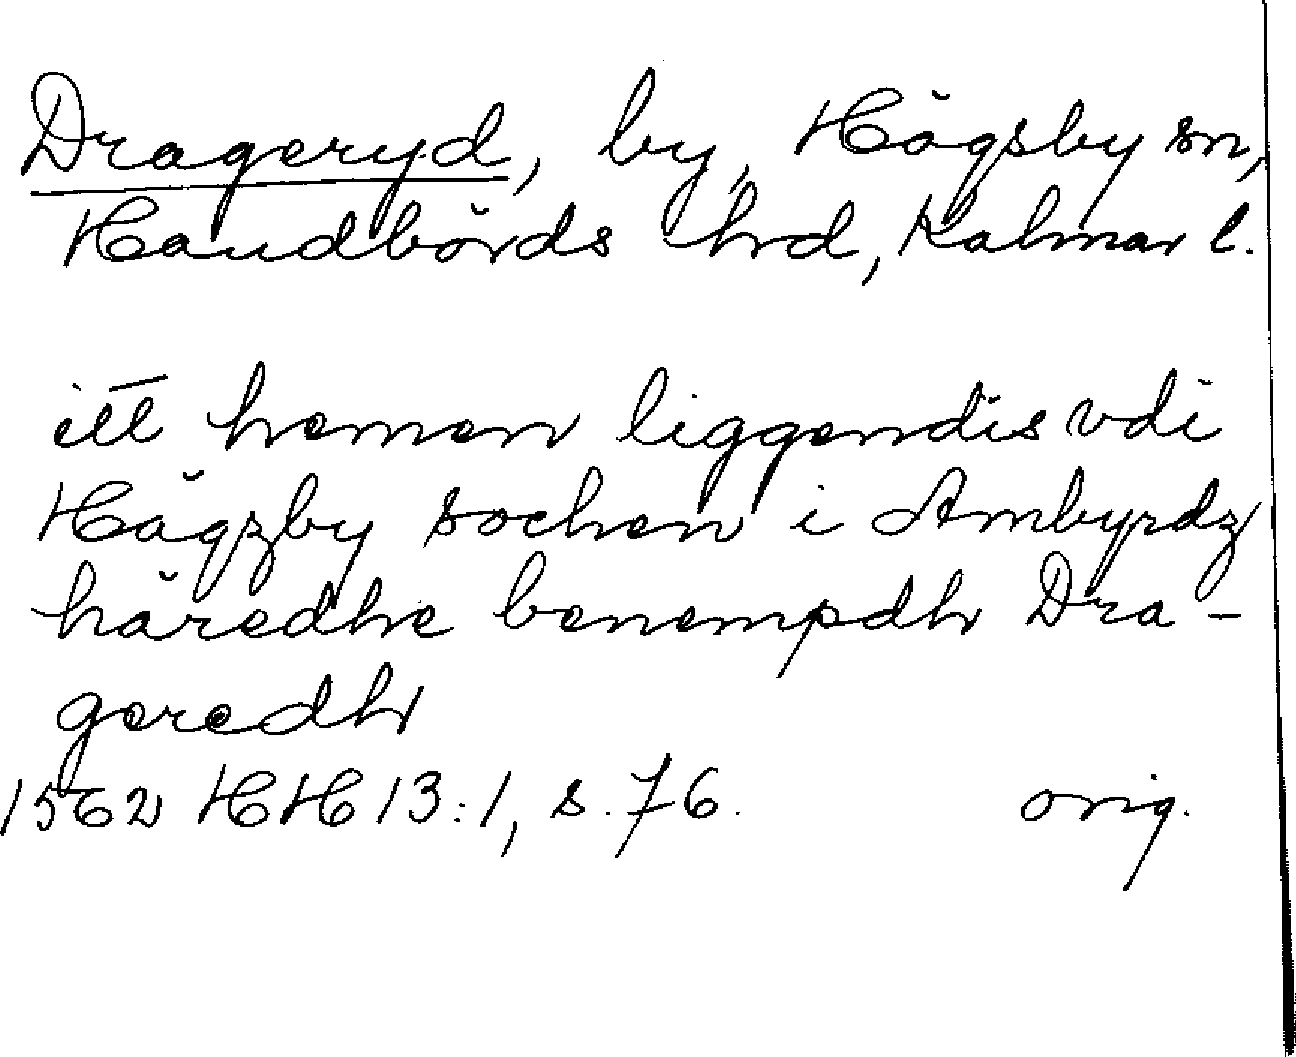 Drageryd, by, Högsby sn,
Handbörds hrd, Kalmar l.
itt hemen liggendis vdi
Högzby sochen i Ambyrdz
häredhe benempdh Dra-
geredh
1562 HH 13:1, s. 76. orig.